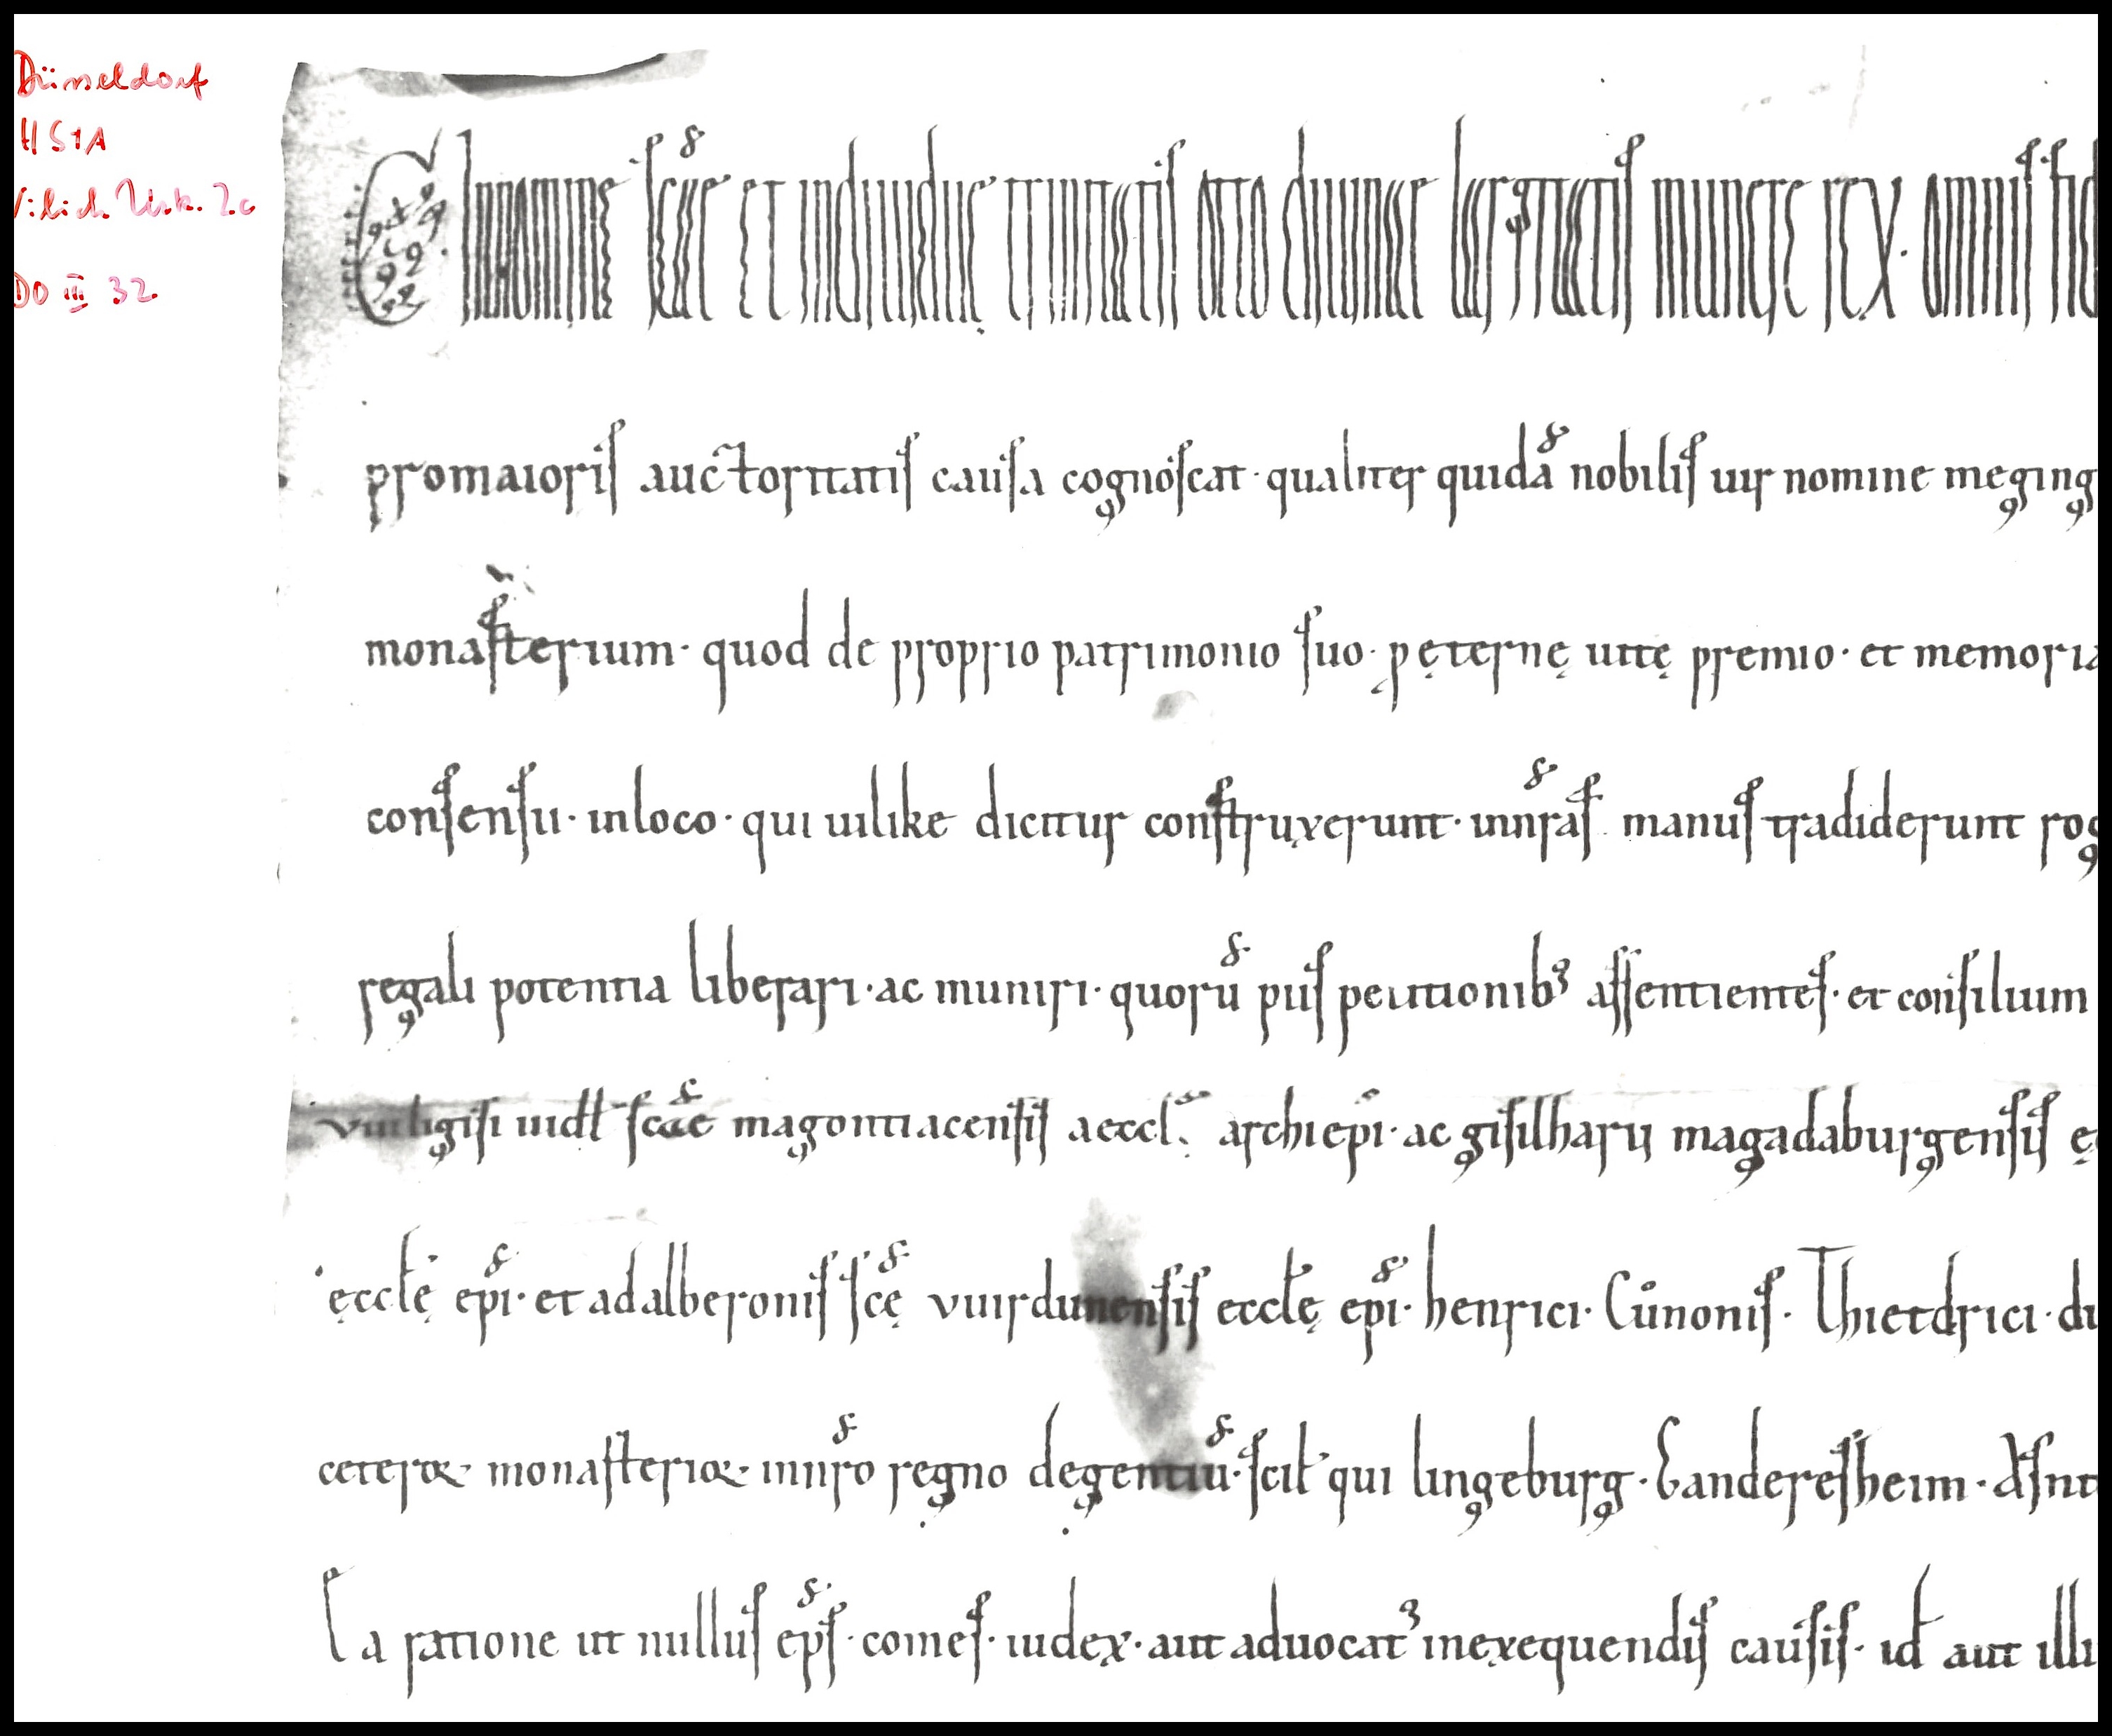 Düsseldorf
HStA
Vilich Urk. 2c
DO III 32
In nomine scae et indiuiduę trinitatis otto diuinae largitatis munere rex · omnis fid
pro maioris auctoritatis causa cognoscat · qualiter quidā nobilis uir nomine meging
monasterium · quod de proprio patrimonio suo · p ęternę uitę premio · et memoria
consensu · in loco · qui uilike dicitur construxerunt · in nras manus tradiderunt rog
regali potentia liberari · ac muniri · quorū piis peititionib; assentientes · et consilium
vuilligisi uidł scae magontiacensis aeccl. archiepi · ac gisilharii magadaburgensis ę
ęcclę epi · et adalberonis scę vuirdunensis ecclę epi · henrici · Cůnonis · Thietdrici · du
ceteroꝝ monasterioꝝ in nro regno degentiū · scił qui lingeburg · Ganderesheim · Asnt
Ea ratione ut nullus eps · comes · iudex · aut aduocat' in exequendis causis · id aut illi